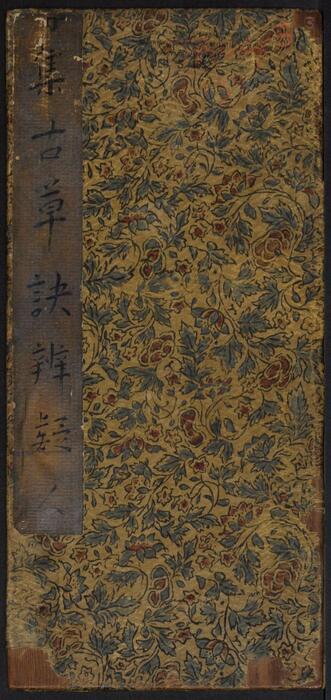 集古草訣辨疑